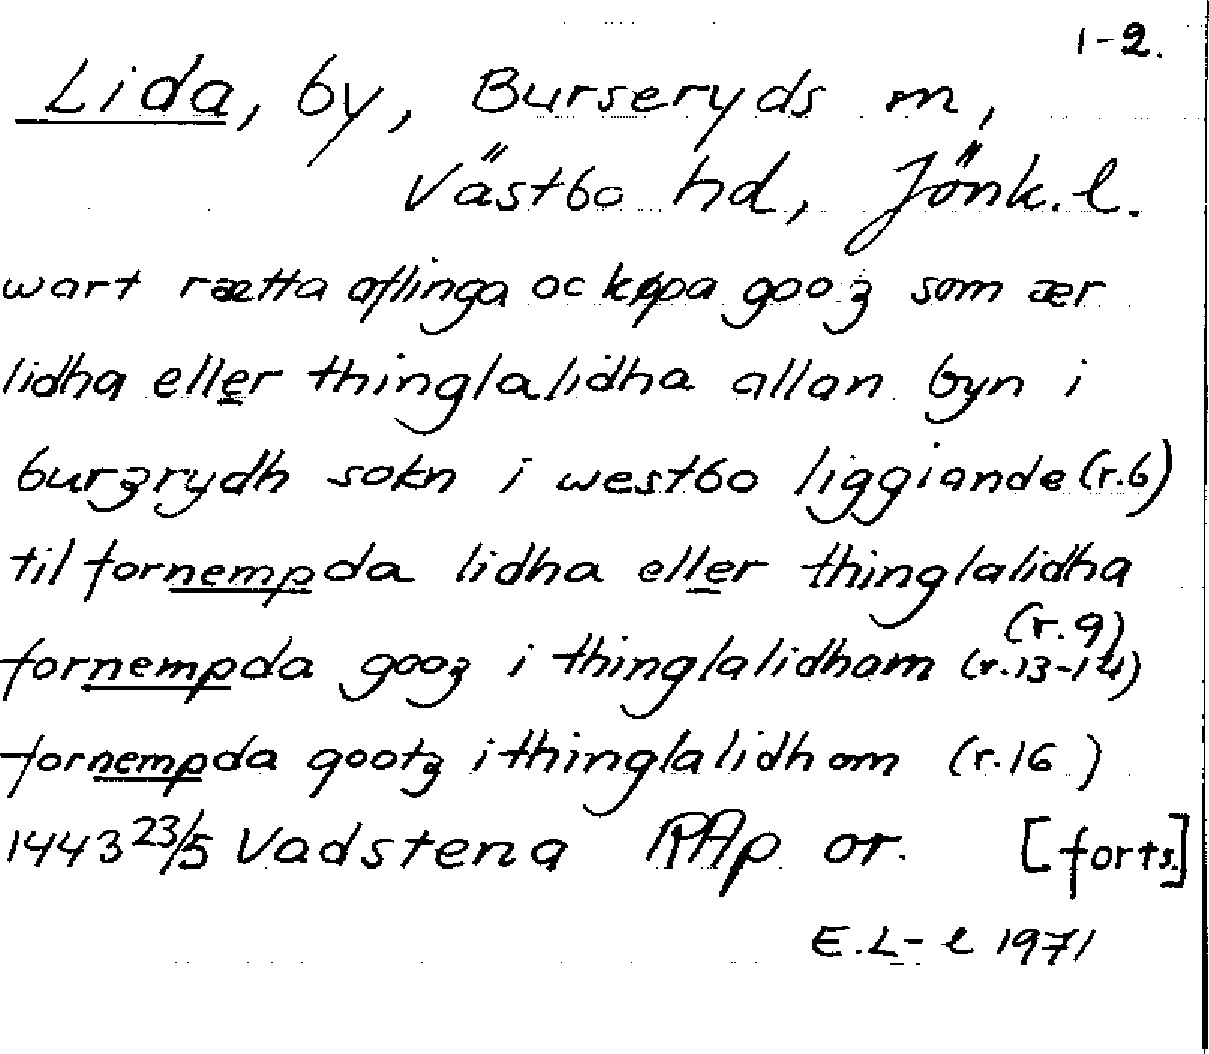 1-2.
Lida, by, Burseryds sn,
Västbo hd, Jönk.l.
wart rætta aflinga oc køpa gooz som ær
lidha eller thinglalidha allan byn i
burzrydh sokn i westbo liggiande (r.6)
til fornempda lidha eller thinglalidha
(r.9)
fornempda gooz i thinglalidhom (r.13-14)
fornempda gootz i thinglalidhom (r.16)
1443 23/5 Vadstena RAp or. [forts.]
E.L-l 1971